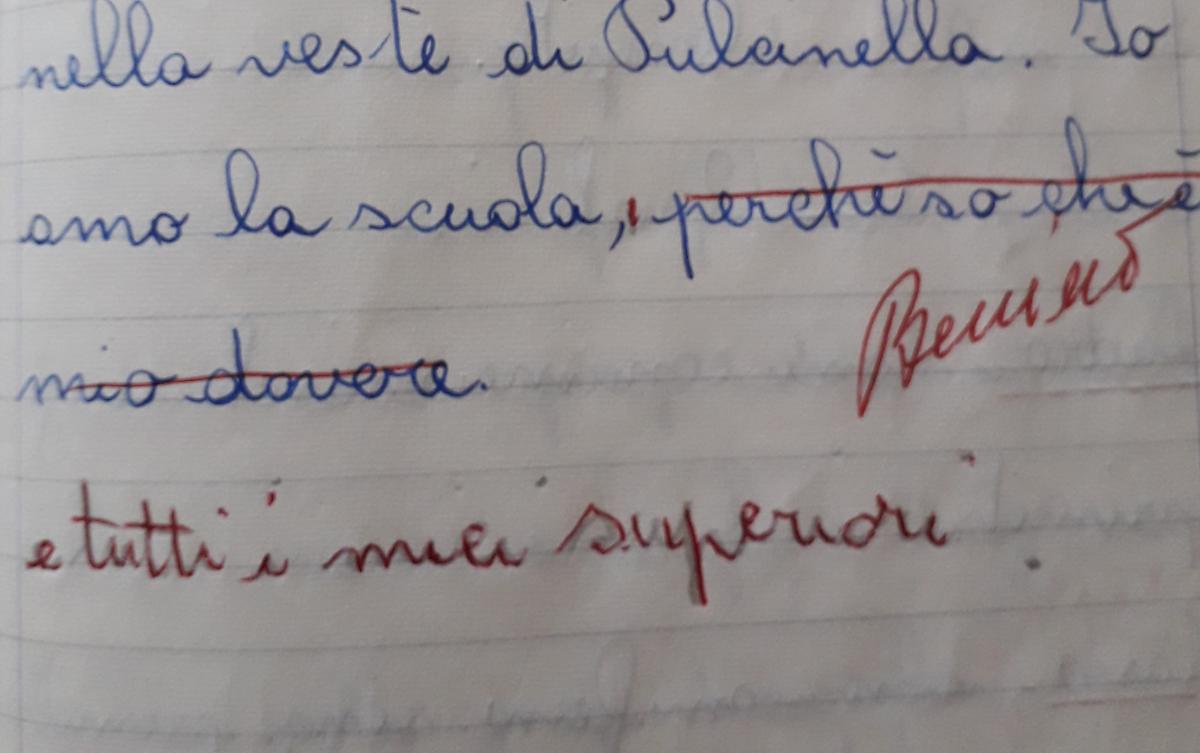 nella veste di Pulcinella. Io
amo la scuola, perchè so che è
mio dovere.
e tutti i miei superiori